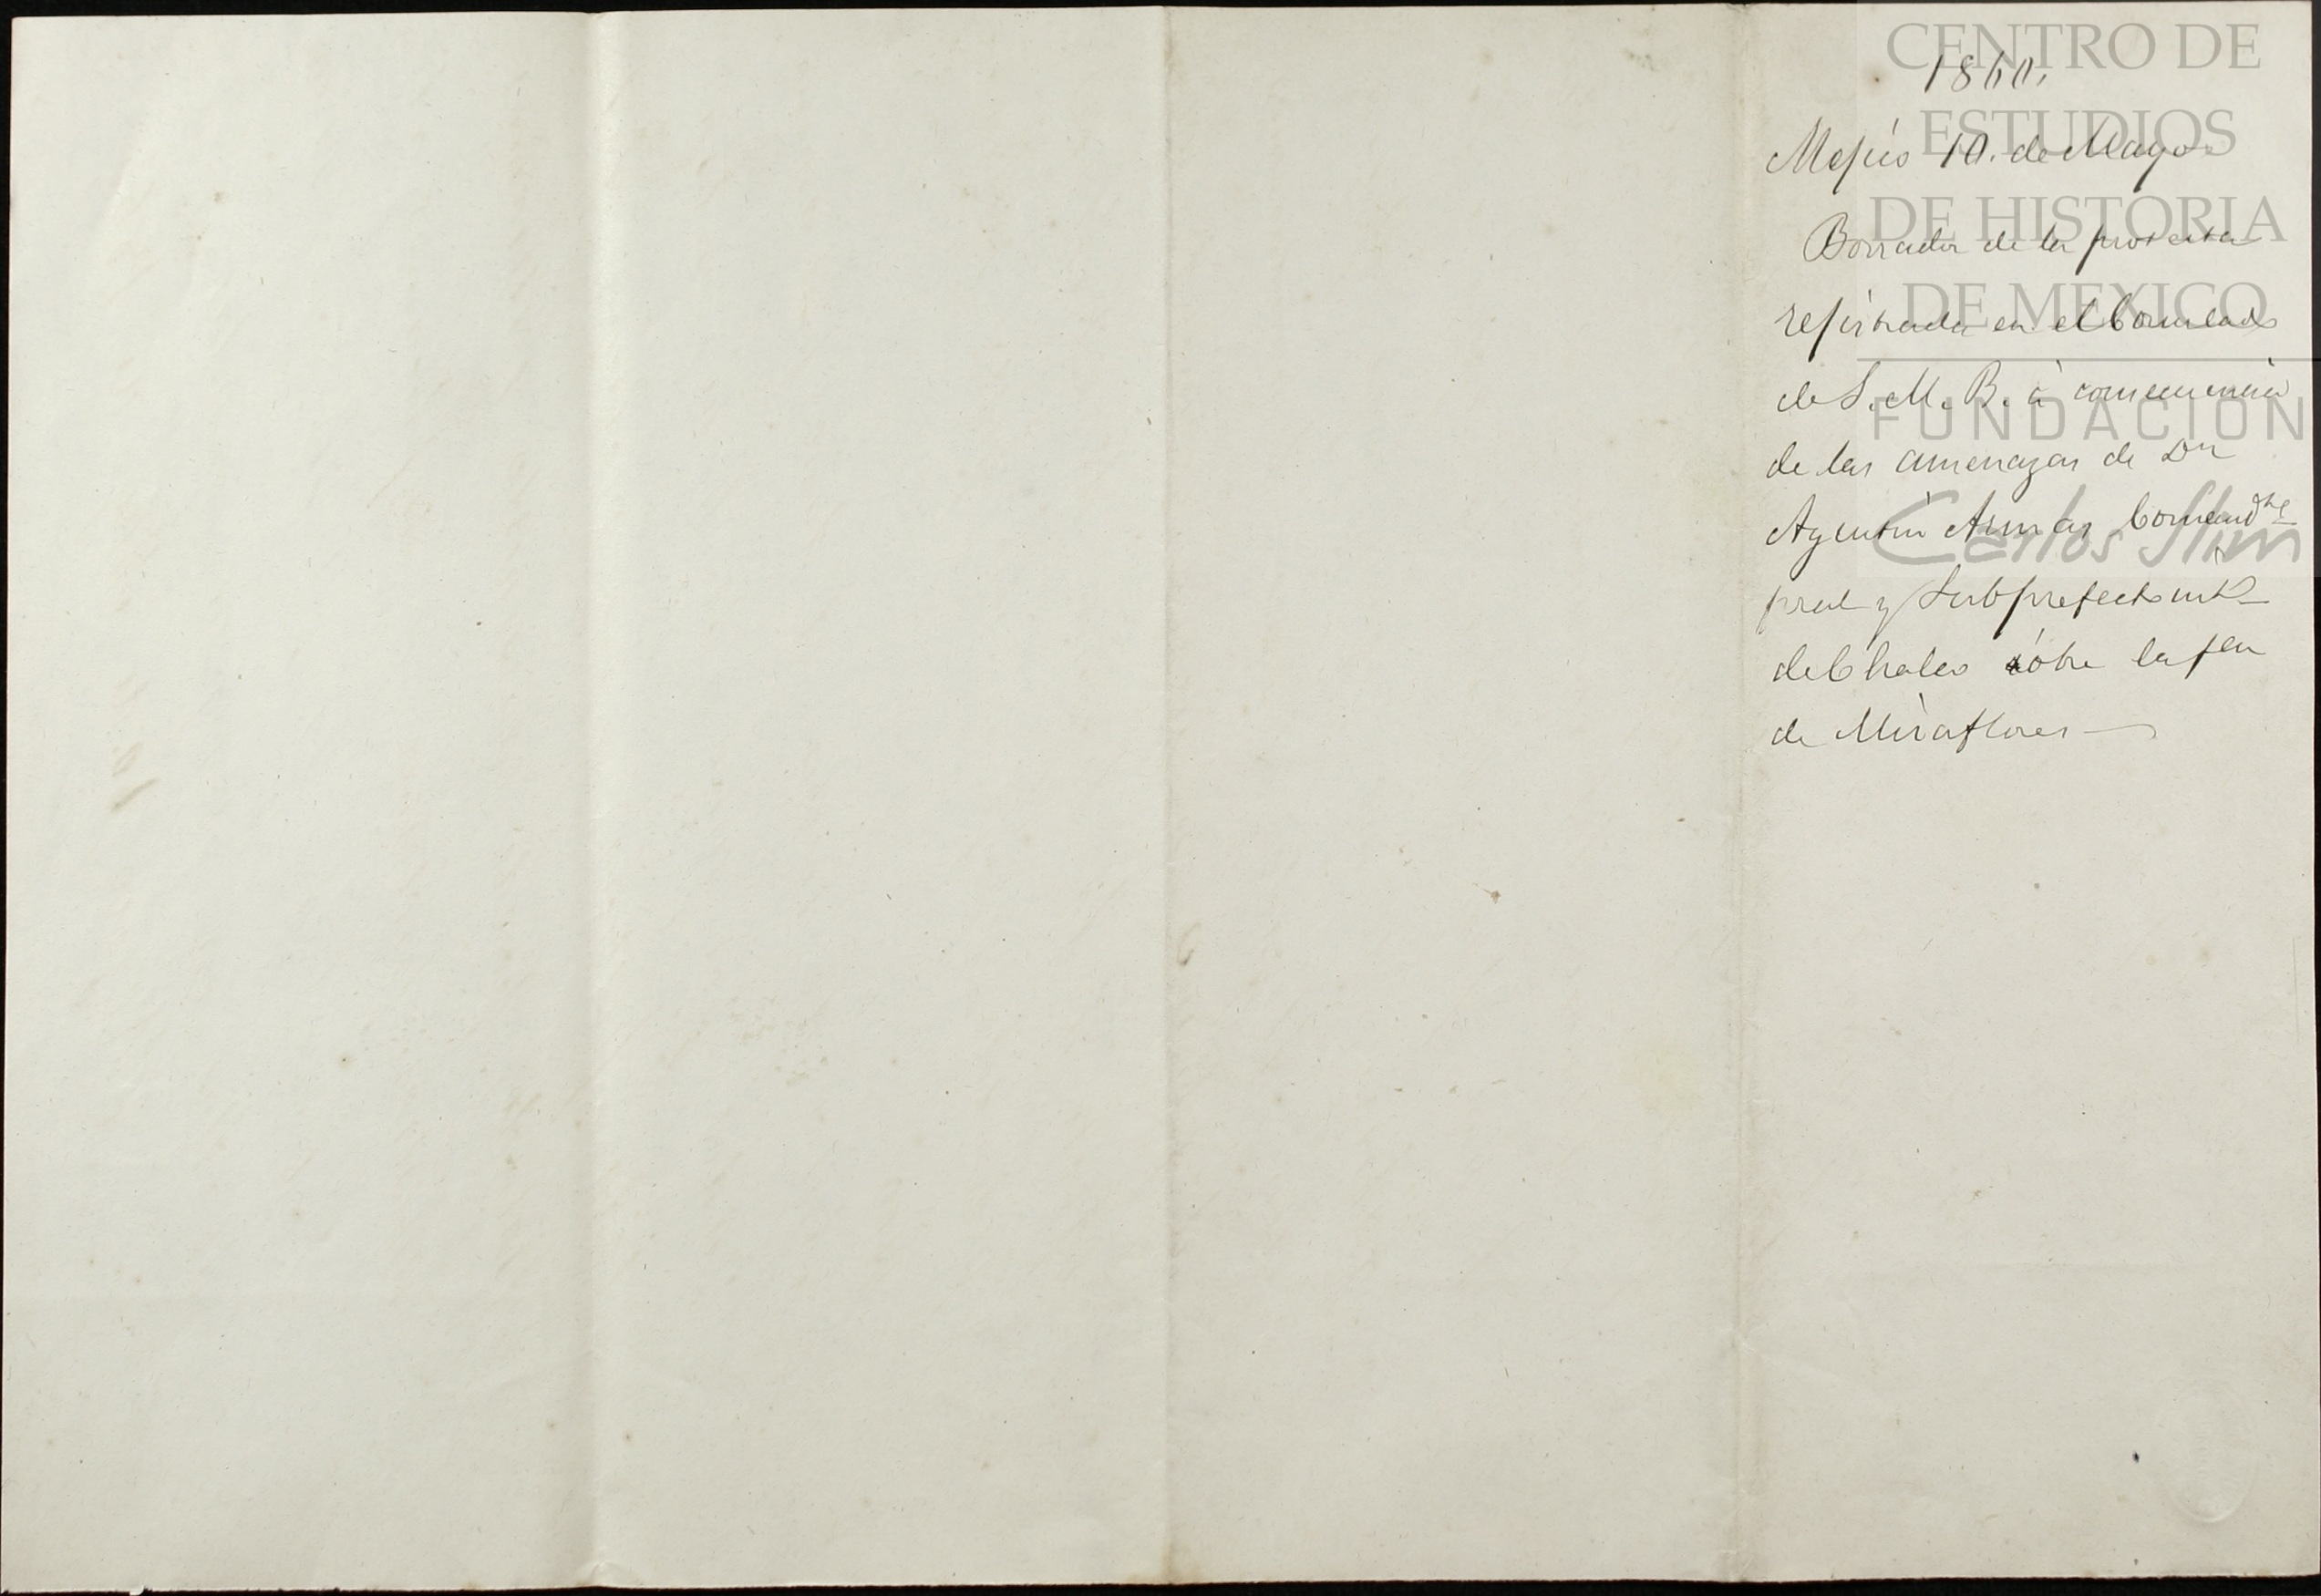 1860.
Mejico 10. de Mayo
Borrador de la protesta
rejistrada en el Consulado
de S. M. B. á consecuencia
de las amenazas de Dn
Agustin Armas Comandte
pral y Subprefecto
de Chalco sobre la fca
de Miraflores
CENTRO DE
ESTUDIOS
DE HISTORIA
DE MEXICO
FUNDACION
Carlos Slim